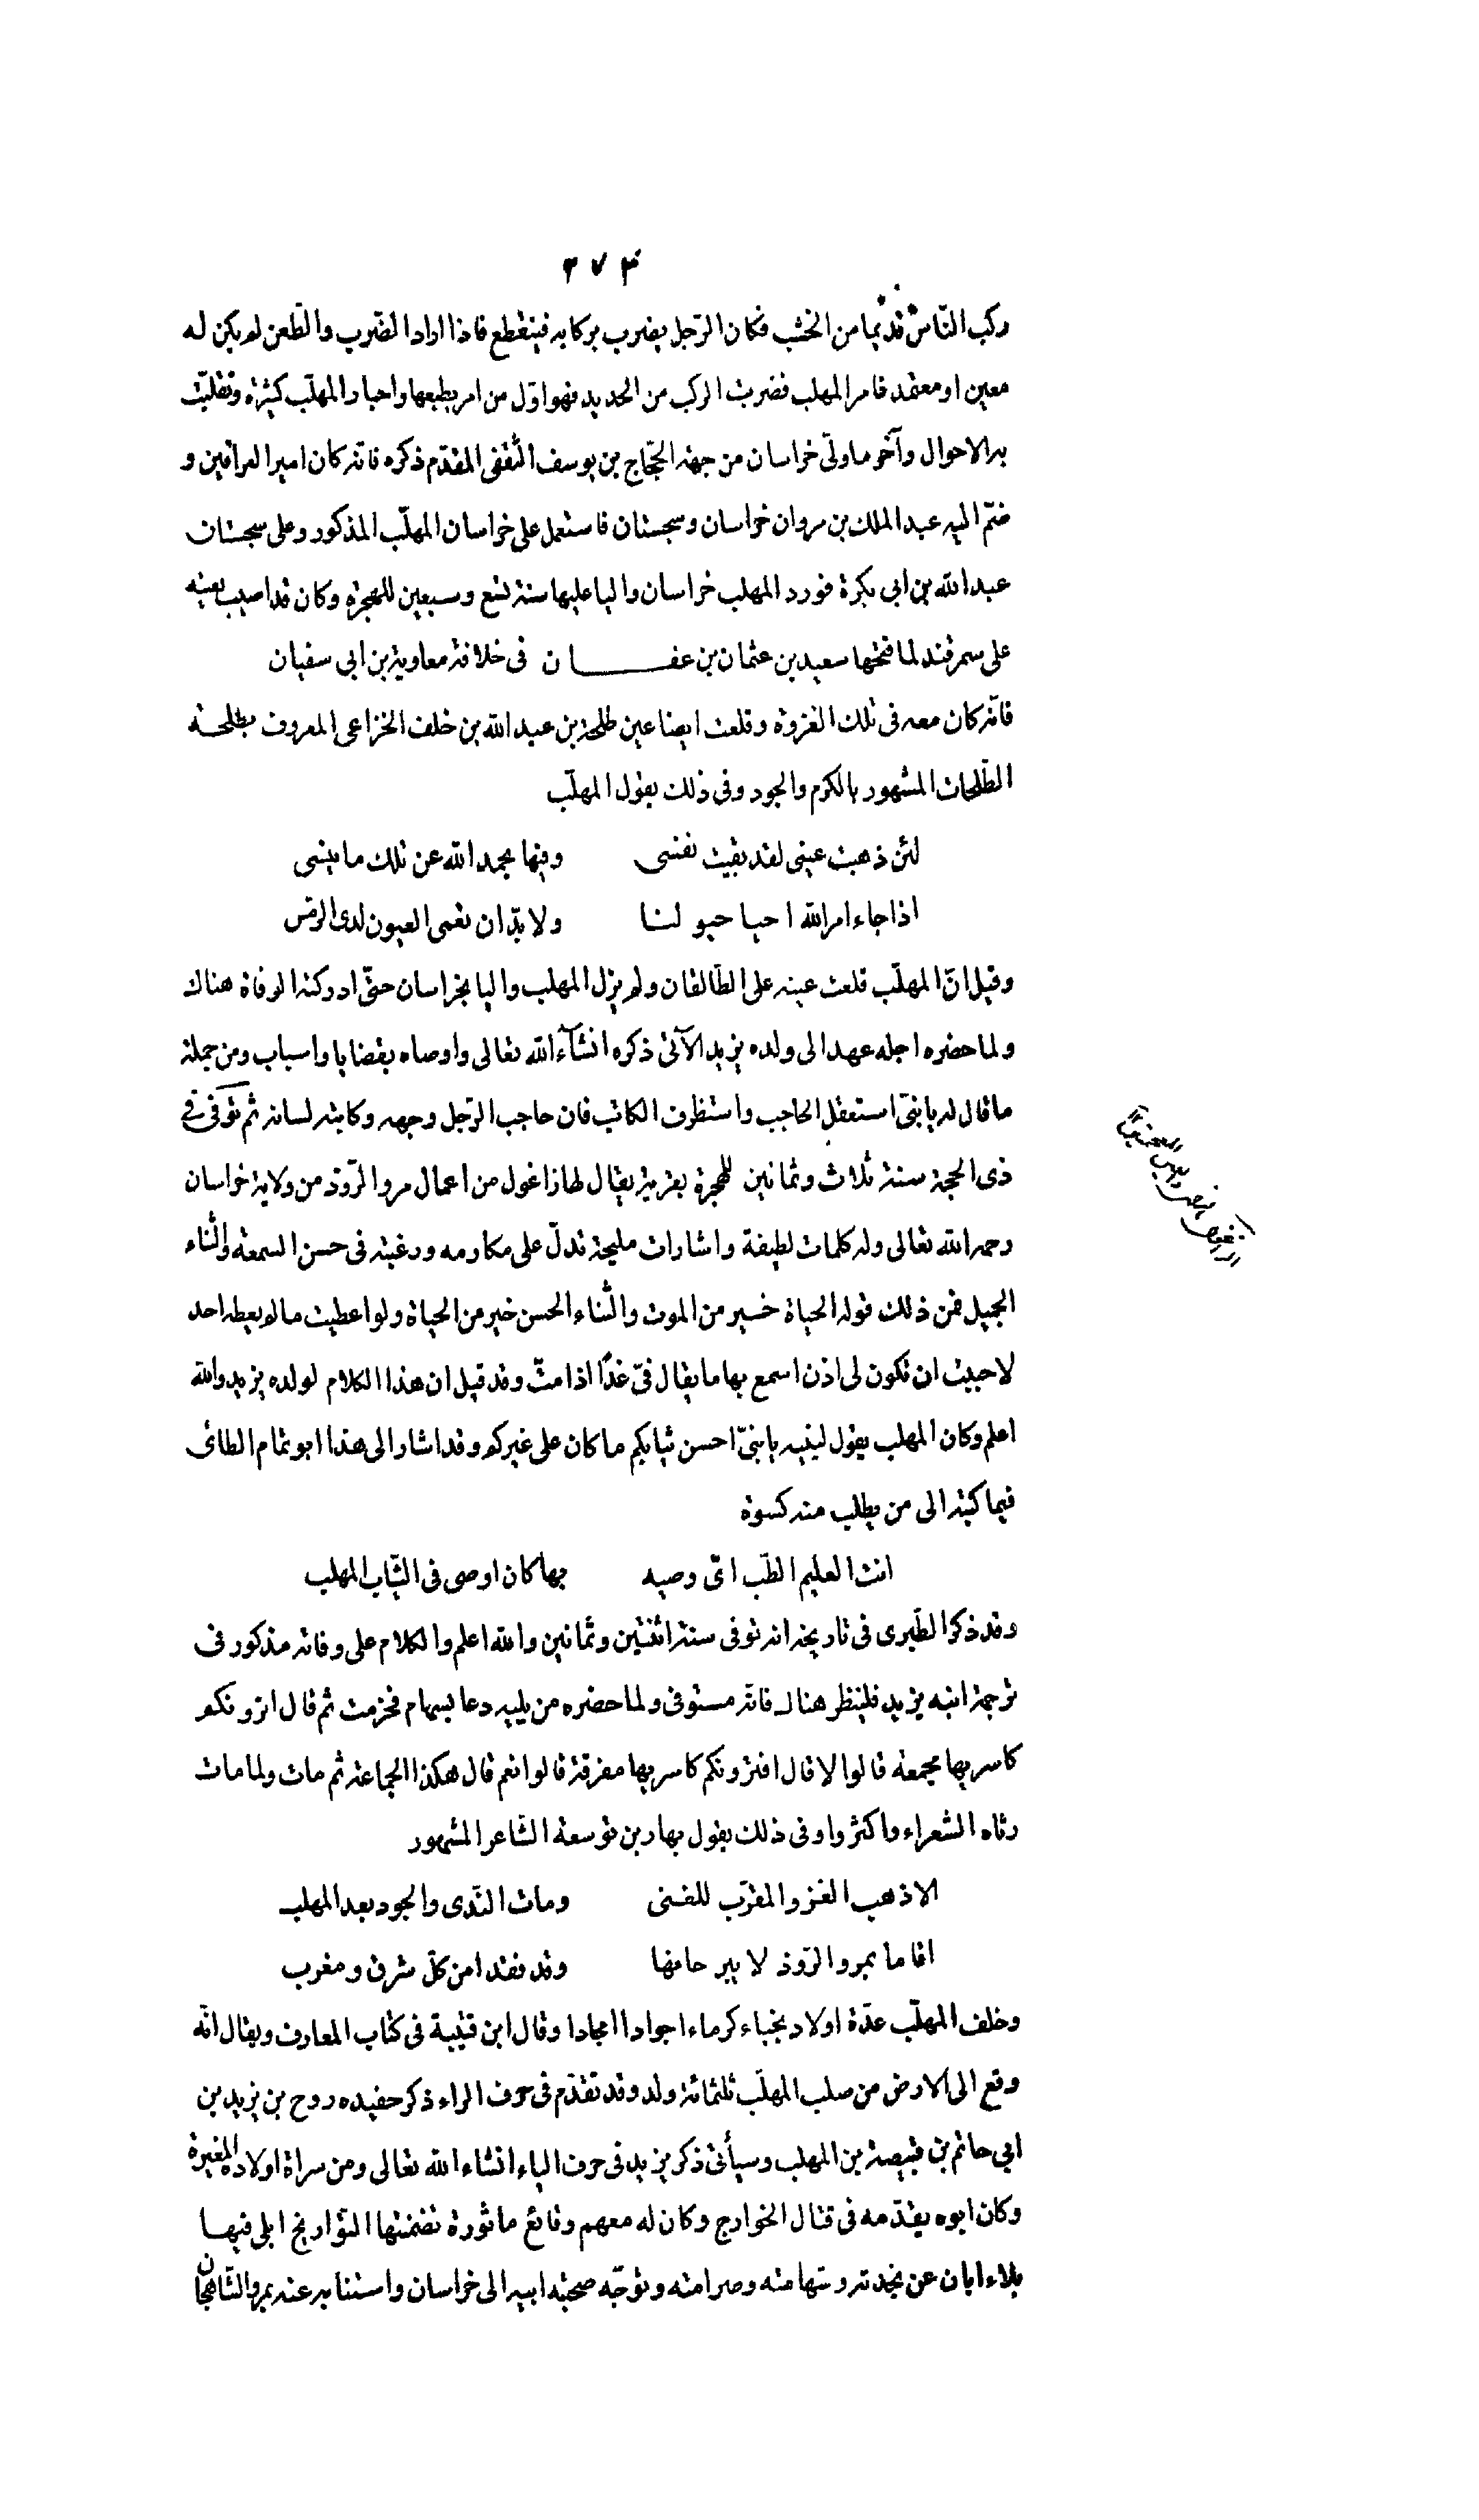 ٣٧٣
ركب النّاس قديما من الخشب فكان الرّجل يضرب بركابه فينقطع فاذا اراد الضّرب والطّعن لم يكن له
معين او معتمد فامر المهلب فضربت الركب من الحديد فهو اوّل من امر بطبعها واخبار المهلّب كثيرة وتقلّبت
به الاحوال وآخر ما ولّى خراسان من جهة الحجّاج بن يوسف الثّقفى المقدّم ذكره فانّه كان امير العراقين و
ضمّ اليه عبد الملك بن مروان خراسان وسجستان فاستعمل على خراسان المهلّب المذكور وعلى سجستان
عبد الله بن ابى بكرة فورد المهلب خراسان واليا عليها سنة تسع وسبعين للهجرة وكان قد اصيب بعينه
على سمرقند لما فتحها سعيد بن عثمان بن عفـــــان فى خلافة معاوية بن ابى سفيان
فانّه كان معه فى تلك الغزوة وقلعت ايضا عين طلحة بن عبد الله بن خلف الخزاعى المعروف بطلحة
الطّلحات المشهور بالكرم والجود وفى ذلك يقول المهلّب
لئن ذهبت عينى لقد بقيت نفسى وفيها بحمد الله عن تلك ما ينسى
اذا جاء امر الله احيا حيو لنا ولا بدّ ان تعمى العيون لدى الرمس
وقيل انّ المهلّب قلعت عينه على الطّالقان ولم يزل المهلب واليا بخراسان حتّى ادركته الوفاة هناك
ولما حضره اجله عهد الى ولده يزيد الآتى ذكره انشآء الله تعالى واوصاه بقضايا واسباب ومن جملة
ما قال له يا بنىّ استعقل الحاجب واستظرف الكاتب فان حاجب الرّجل وجهه وكاتبه لسانه ثم توفى فى
ذى الحجة سنة ثلاث وثمانين للهجرة بقرية يقال لها زاغول من اعمال مرو الرّوذ من ولاية خراسان
رحمه الله تعالى وله كلمات لطيفة واشارات مليحة تدلّ على مكارمه ورغبته فى حسن السمعة والثّناء
الجميل فمن ذلك قوله الحياة خير من الموت والثّناء الحسن خير من الحياة ولو اعطيت ما لم يعطه احد
لاحببت ان تكون لى اذن اسمع بها ما يقال فىّ غدًا اذا متّ وقد قيل ان هذا الكلام لولده يزيد والله
اعلم وكان المهلب يقول لبنيه يا بنىّ احسن ثيابكم ما كان على غيركم وقد اشار الى هذا ابو تمام الطائى
فيما كتبه الى من يطلب منه كسوة
انت العليم الطّب اىّ وصيه بها كان اوصى فى الثّياب المهلب
وقد ذكر الطّبرى فى تاريخه انه توفى سنة اثنتين وثمانين والله اعلم والكلام على وفاته مذكور فى
ترجمة ابنه يزيد فلينظر هناك فانّه مستوفى ولما حضره من يليه دعا بسهام فحزمت ثم قال اترونكم
كاسريها مجمعة قالوا لا قال افترونكم كاسريها مفرقة قالوا نعم قال هكذا الجماعة ثم مات ولما مات
رثاه الشعراء واكثروا وفى ذلك يقول بهار بن توسعة الشّاعر المشهور
الا ذهب الغزو المقرّب للغنى ومات النّدى والجود بعد المهلب
اقاما بمرو الرّوذ لا يبر حانها وقد فقدا من كلّ شرق ومغرب
وخلف المهلّب عدّة اولاد نجباء كرماء اجوادا امجادا وقال ابن قتيبة فى كتاب المعارف ويقال انّه
وقع الى الارض من صلب المهلّب ثلثمائة ولد وقد تقدّم فى حرف الراء ذكر حفيده روح بن يزيد بن
ابي حاتم بن قبيصة بن المهلب وسيأتى ذكر يزيد فى حرف الياء انشاء الله تعالى ومن سراة اولاده المغيرة
وكان ابوه يقدّمه فى قتال الخوارج وكان له معهم وقائع ماثورة تضمنتها التّواريخ ابلى فيها
بلاء ابان عن نجدته وشهامته وصرامته وتوجّه صحبة ابيه الى خراسان واستنابه عنه بمرو الشّاهجان